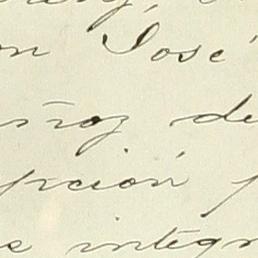 on José
ñoz de
pción
e integr